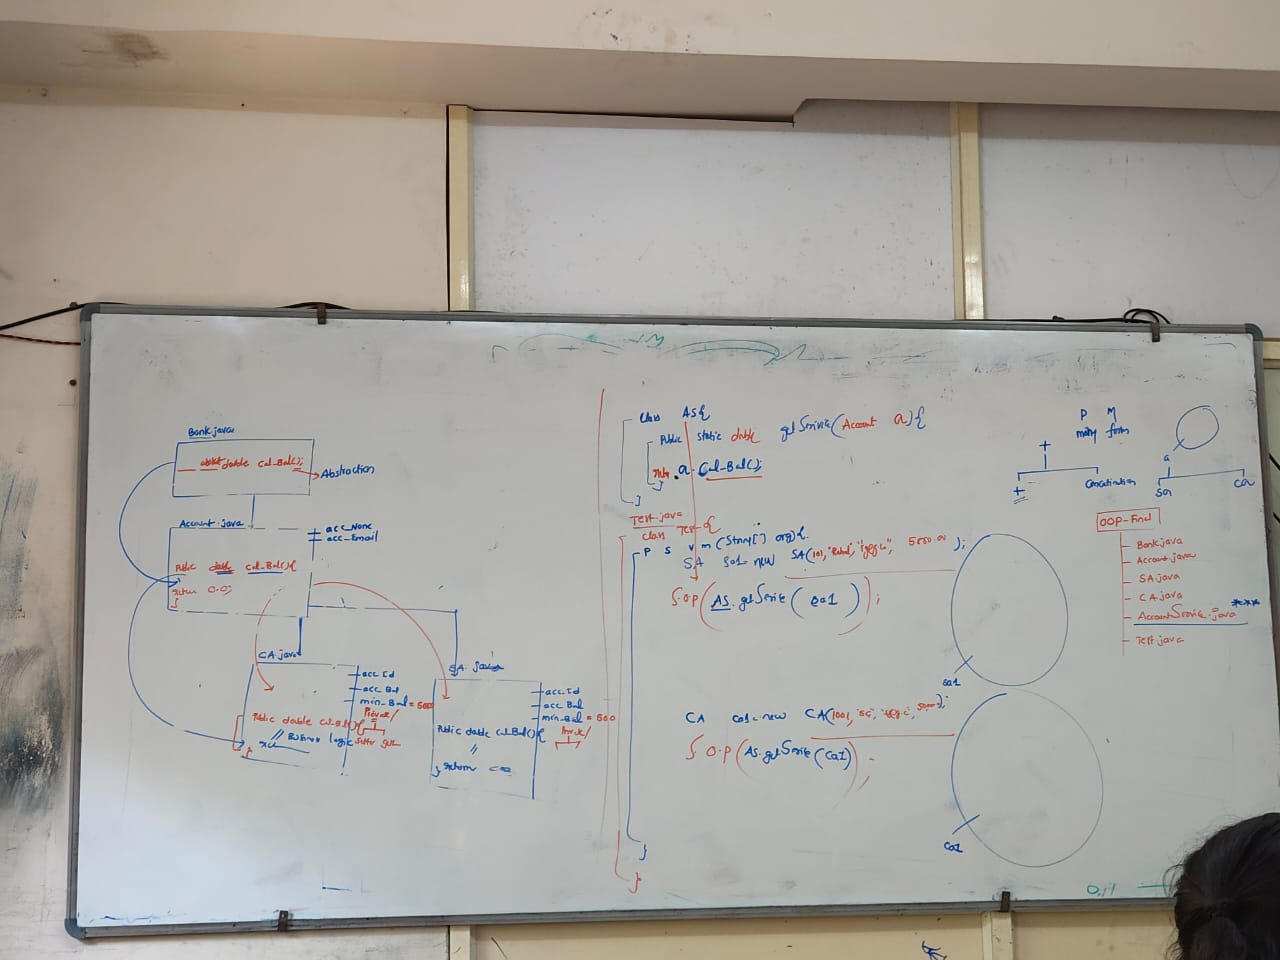 Bank.java
abst double Cal-Bal();
Abstraction
Account.java
acc_Name
acc_Email
Public double Cal-Bal(){
return 0.0;
}
CA.java
acc Id
acc Bal
min-Bal = 500
Private/
Public double Cal-Bal(){
// Business logic setter getr
}
SA.java
acc.Id
acc Bal
min-Bal = 500
Public double Cal-Bal(){
//
} return
Class AS{
Public static double getService(Account a){
a.Cal-Bal();
}
}
Test.java
Class Test{
P S V m (String[] arg){
SA sa1 = new SA(101, 5000.00);
S.O.P(AS.getService(sa1));
sa1
CA ca1 = new CA(1001,
S.O.P(AS.getService(ca1));
ca1
}
}
P M
many form
+
+
Concatination
a
sa
ca
OOP-Final
Bank.java
Account.java
SA.java
CA.java
AccountService.java ****
Test.java